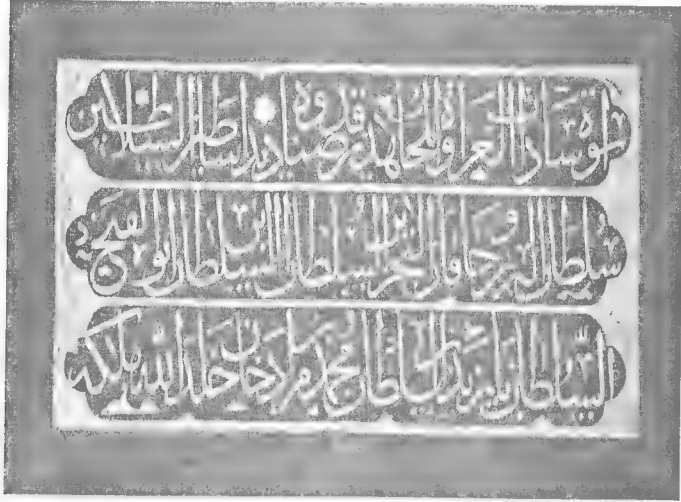 سادات الغزاة والمجاهدين قدوه صناديد اساطين السلاطين
سلطان البرين وخاقان البحرين السلطان ابن السلطان ابو الفتح
السلطان بايزيد بن السلطان محمد بن مراد خان خلد الله ملكه